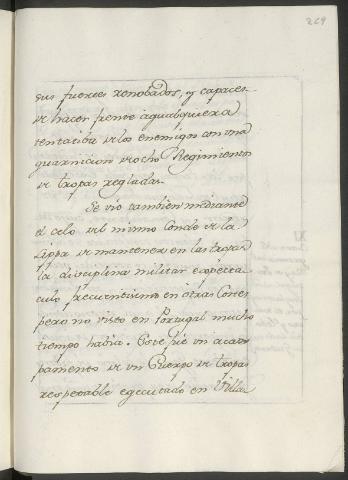 269
sus fuerzes renobados, y capaces
de hacer frente aqualquiera
tentatiba de los enemigos con una
guarnicion de ocho Regimientos
de tropas regladas.
Se vio tambien mediante
el celo del mismo Conde de la
Lippa de mantener en las tropas
la disciplina militar expecta-
culo frecuentisimo en otras Cortes
pero no visto en Portugal mucho
tiempo habia. Este fué un acam
pamento de un Cuerpo de tropas
respetable egecutado en Villa